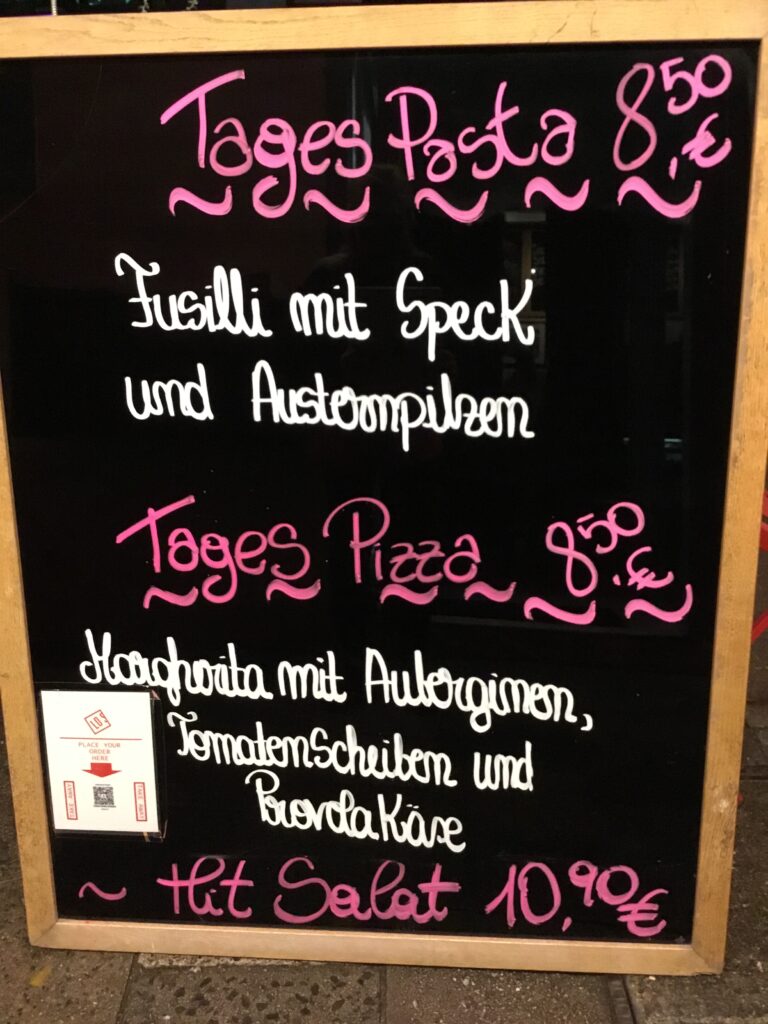 Tages Pasta 8,50 €
Fusilli mit Speck
und Austernpilzen
Tages Pizza 8,50 €
Margherita mit Auberginen,
Tomatenscheiben und
Provola Käse
LOS
PLACE YOUR
ORDER
HERE
TAKE AWAY
TAKE AWAY
~ Hit Salat 10,90 €